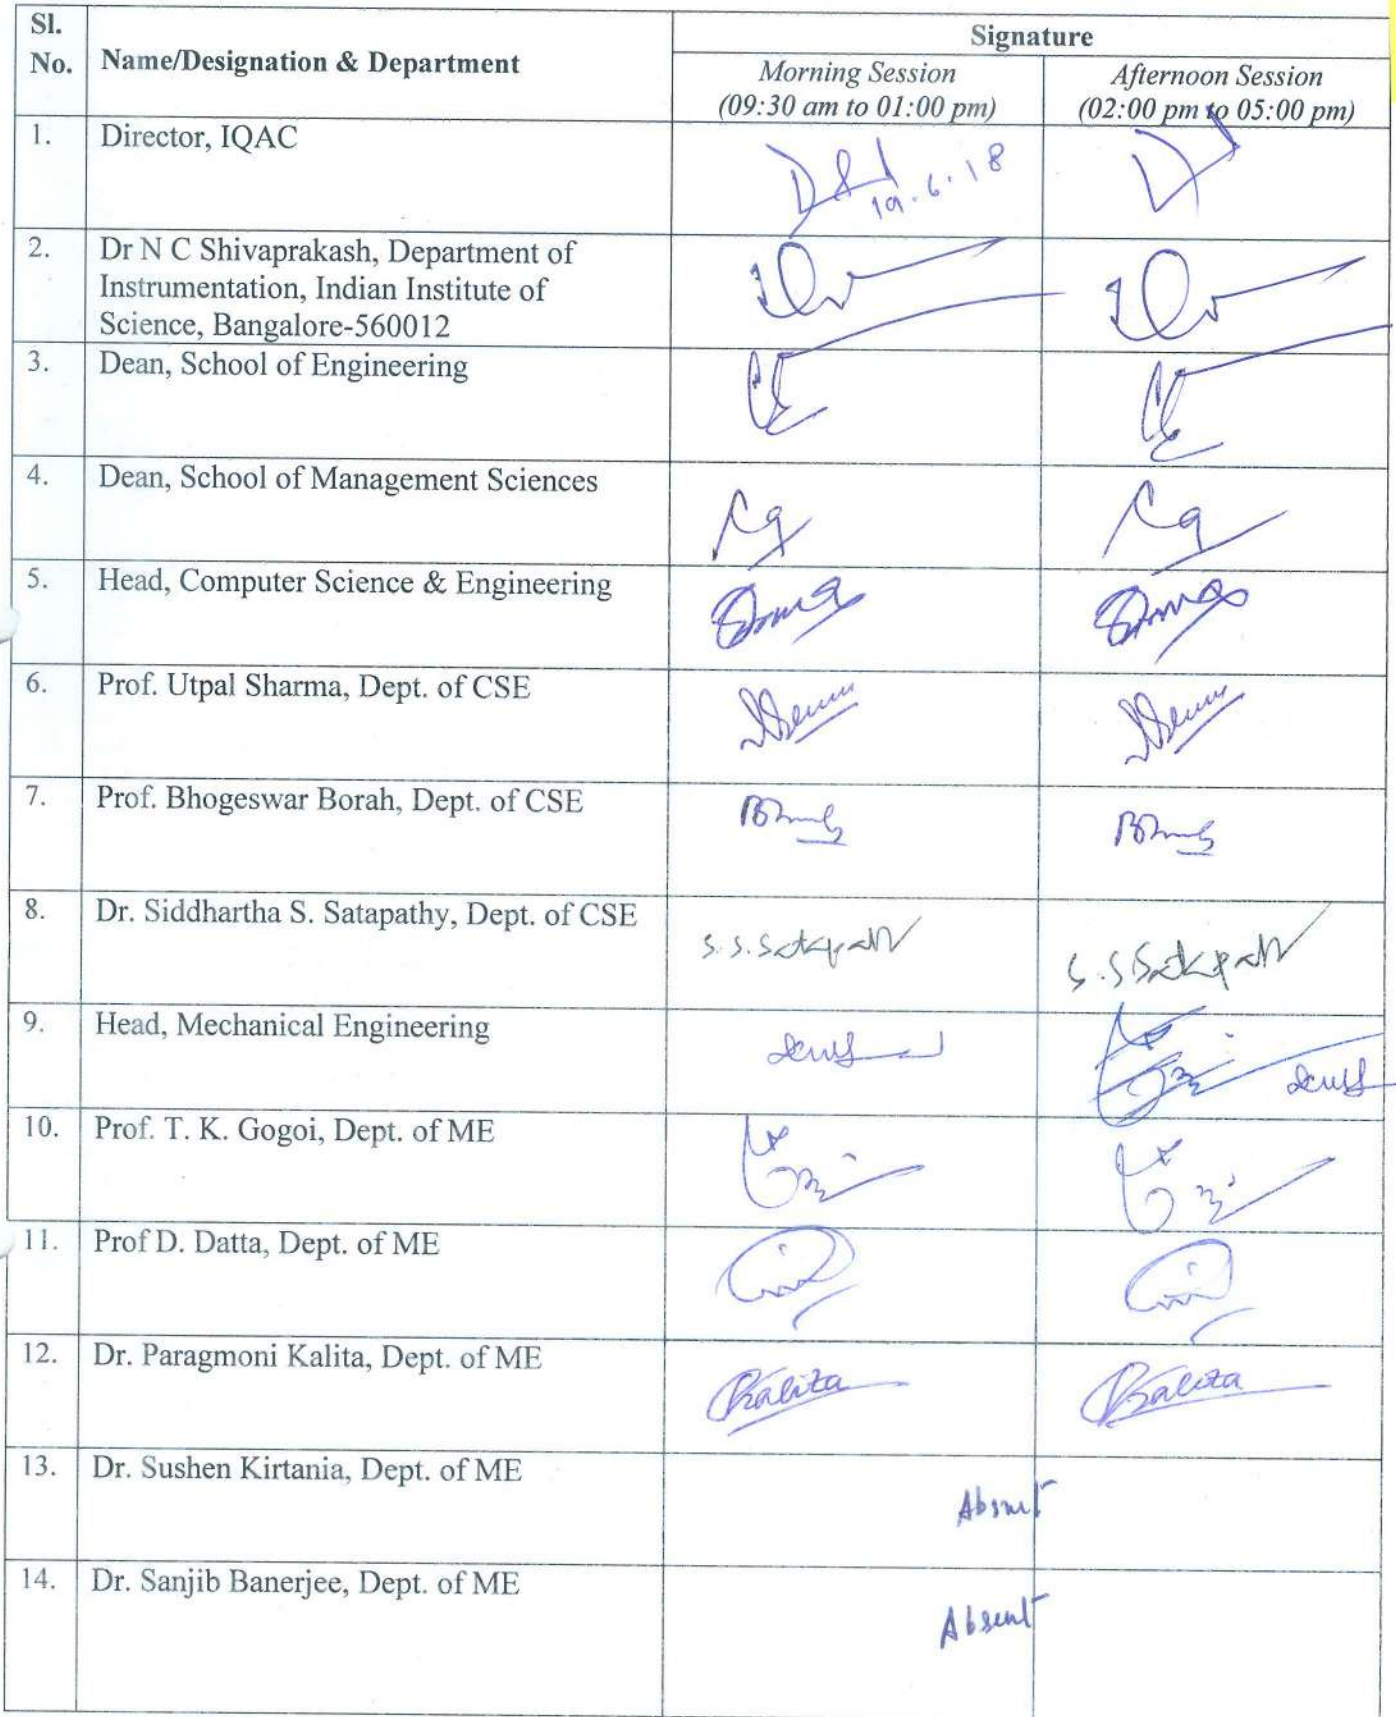 Sl. No.
Name/Designation & Department
Signature
Morning Session
(09:30 am to 01:00 pm)
Afternoon Session
(02:00 pm to 05:00 pm)
1. Director, IQAC
19.6.18
2. Dr N C Shivaprakash, Department of
Instrumentation, Indian Institute of
Science, Bangalore-560012
3. Dean, School of Engineering
4. Dean, School of Management Sciences
5. Head, Computer Science & Engineering
6. Prof. Utpal Sharma, Dept. of CSE
7. Prof. Bhogeswar Borah, Dept. of CSE
8. Dr. Siddhartha S. Satapathy, Dept. of CSE
9. Head, Mechanical Engineering
10. Prof. T. K. Gogoi, Dept. of ME
11. Prof D. Datta, Dept. of ME
12. Dr. Paragmoni Kalita, Dept. of ME
13. Dr. Sushen Kirtania, Dept. of ME
Absent
14. Dr. Sanjib Banerjee, Dept. of ME
Absent